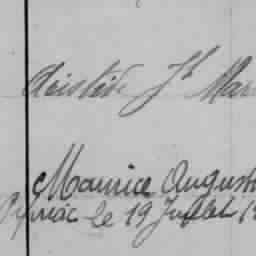 Aristide Jh Mar
Maurice August
le 19 Juillet 1